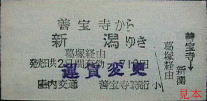 善宝寺から
新潟ゆき
葛塚経由
発売日共2日間有効
運賃変更
庄内交通 善宝寺駅発行
小
善宝寺→新潟
葛塚経由
見本